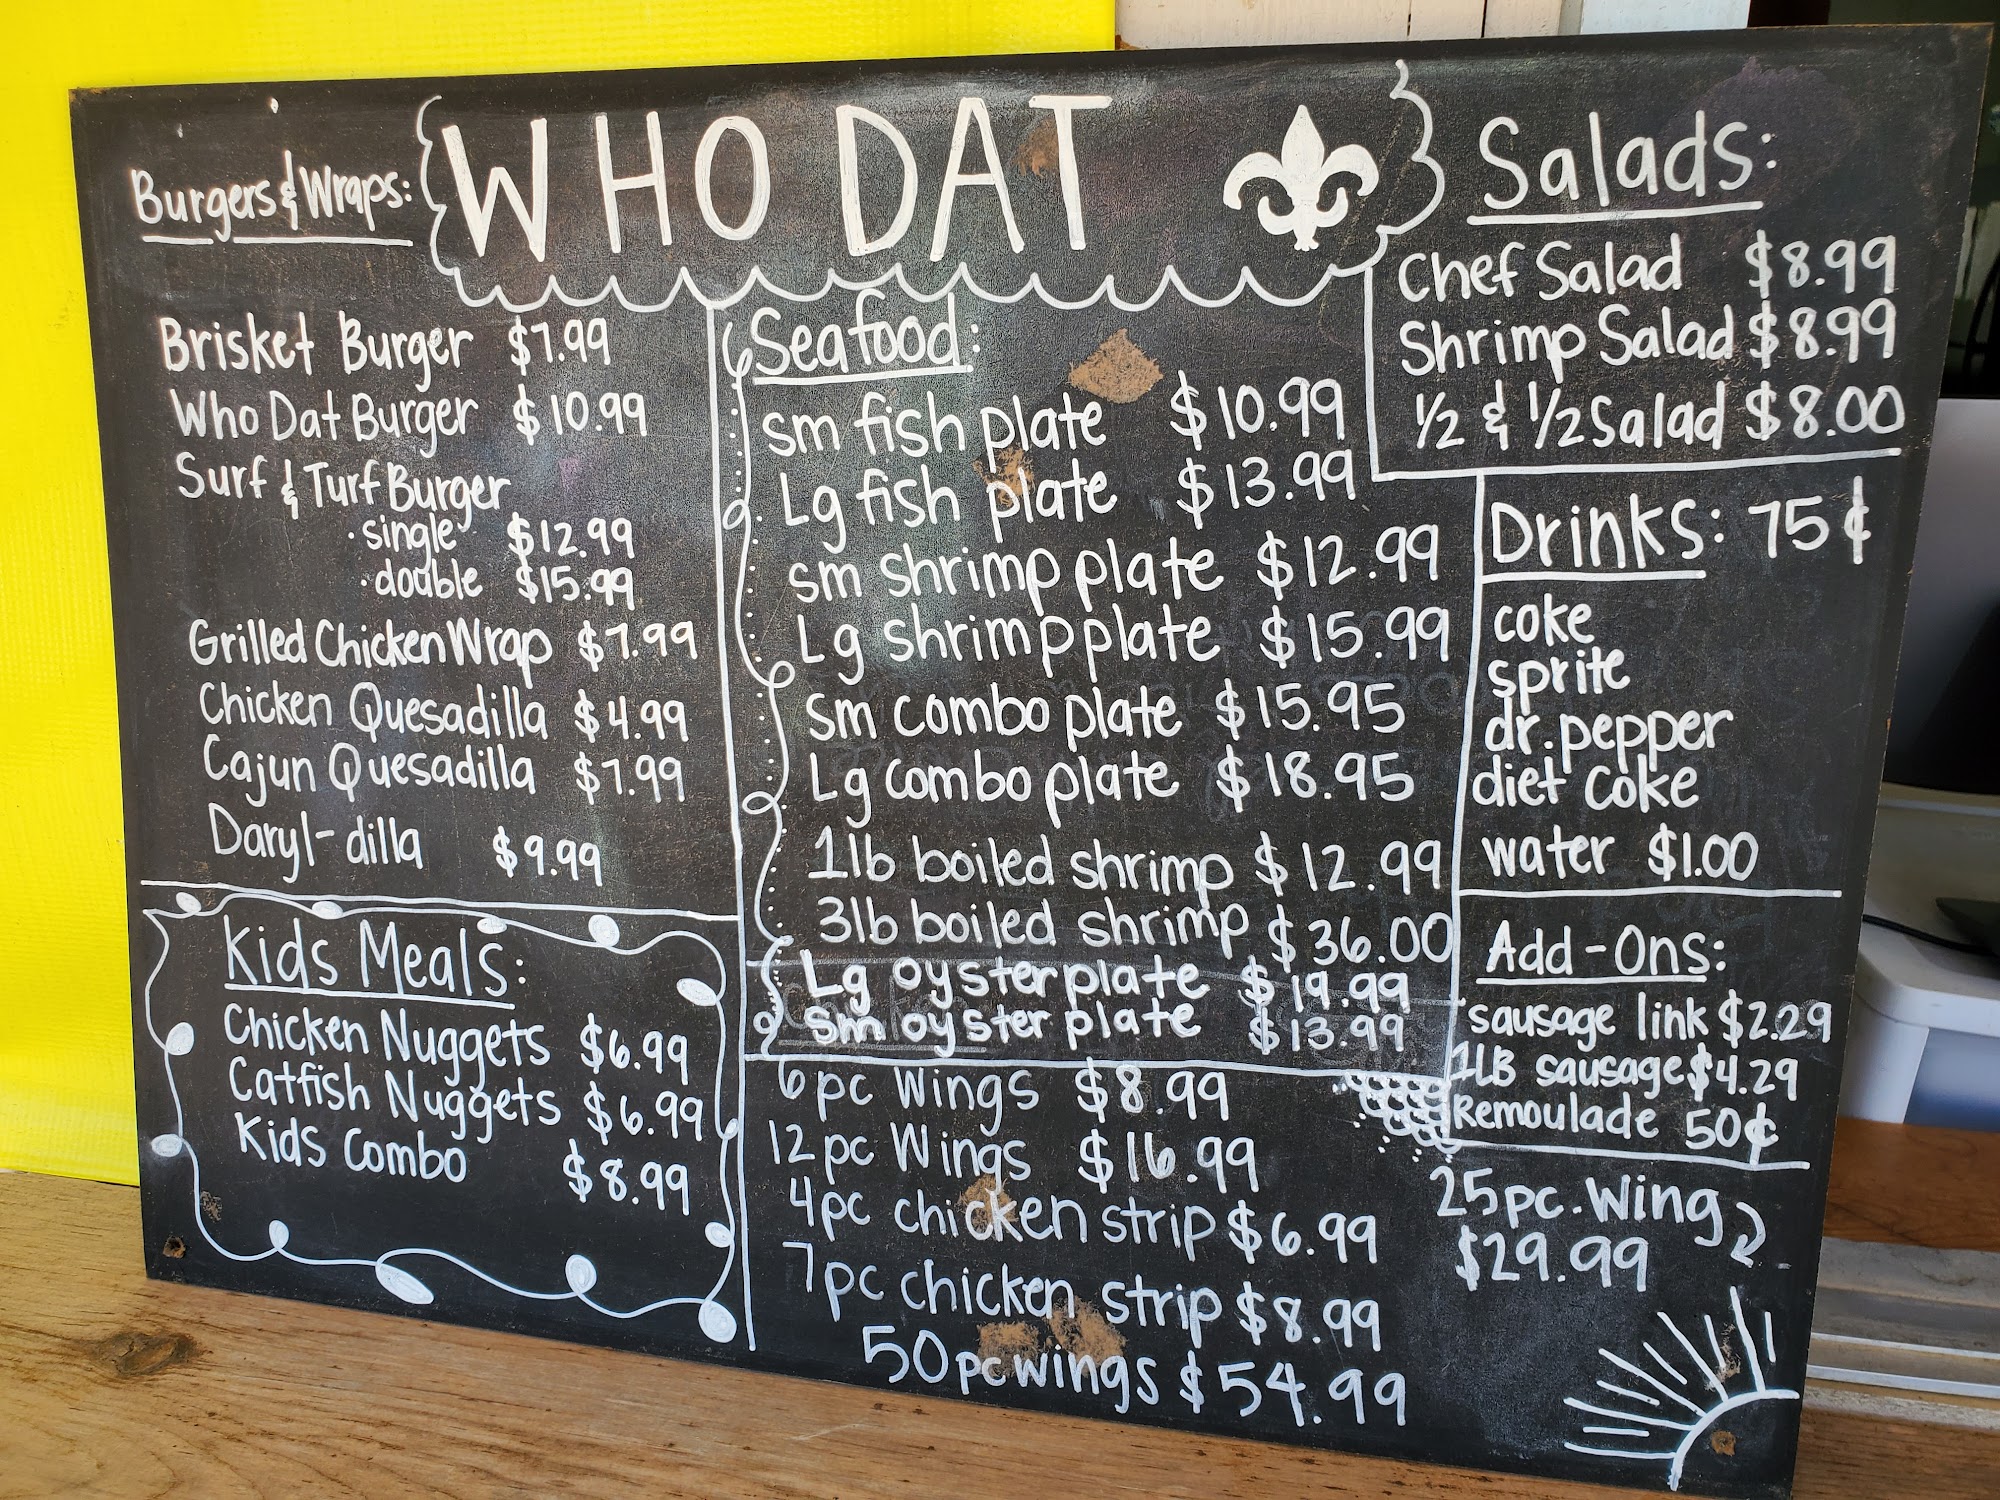 WHO DAT
Burgers & Wraps:
Brisket Burger $7.99
Who Dat Burger $10.99
Surf & Turf Burger
· single $12.99
· double $15.99
Grilled Chicken Wrap $7.99
Chicken Quesadilla $4.99
Cajun Quesadilla $7.99
Daryl-dilla $9.99
Kids Meals:
Chicken Nuggets $6.99
Catfish Nuggets $6.99
Kids Combo $8.99
Seafood:
sm fish plate $10.99
Lg fish plate $13.99
sm shrimp plate $12.99
Lg shrimp plate $15.99
sm combo plate $15.95
Lg combo plate $18.95
1lb boiled shrimp $12.99
3lb boiled shrimp $36.00
Lg oyster plate $19.99
sm oyster plate $13.99
6pc Wings $8.99
12pc Wings $16.99
4pc chicken strip $6.99
7pc chicken strip $8.99
50pc wings $54.99
Salads:
Chef Salad $8.99
Shrimp Salad $8.99
1/2 & 1/2 Salad $8.00
Drinks: 75¢
coke
sprite
dr. pepper
diet coke
water $1.00
Add-Ons:
sausage link $2.29
1LB sausage $4.29
Remoulade 50¢
25pc. Wing
$29.99